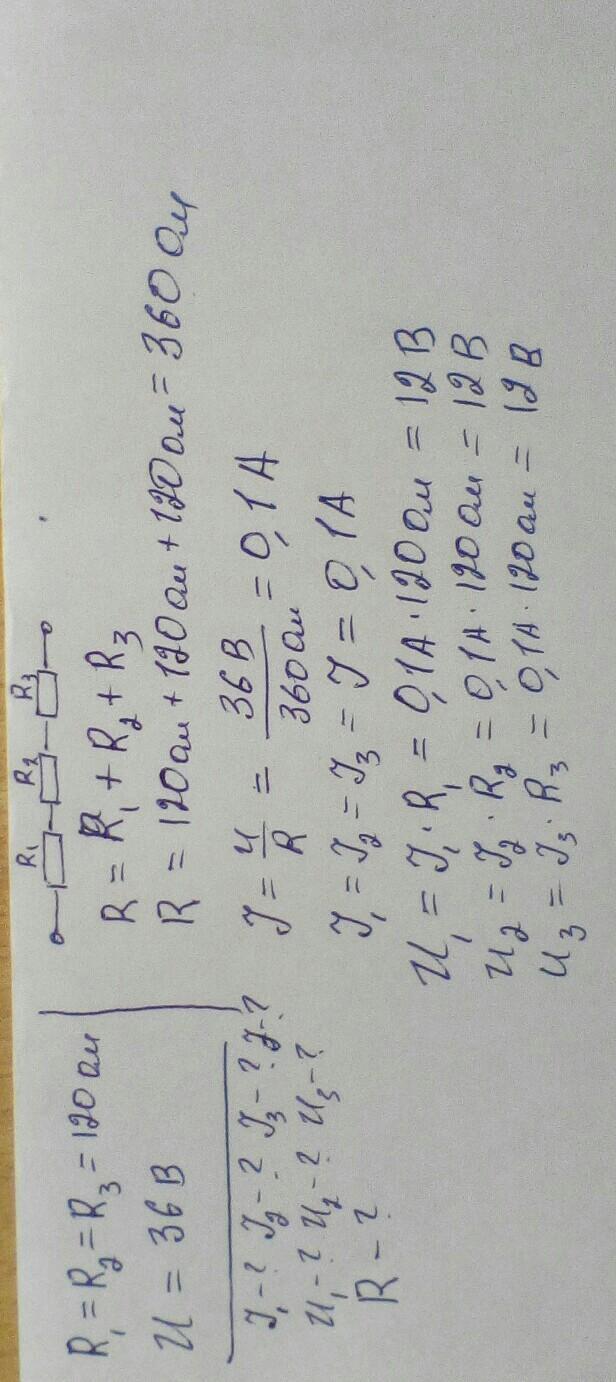 R₁ = R₂ = R₃ = 120 Ом
U = 36 В
I₁ - ? I₂ - ? I₃ - ? I - ?
U₁ - ? U₂ - ? U₃ - ?
R - ?
R₁ R₂ R₃
R = R₁ + R₂ + R₃
R = 120 Ом + 120 Ом + 120 Ом = 360 Ом
I = U/R = 36 В/360 Ом = 0,1 А
I₁ = I₂ = I₃ = I = 0,1 А
U₁ = I₁ · R₁ = 0,1 А · 120 Ом = 12 В
U₂ = I₂ · R₂ = 0,1 А · 120 Ом = 12 В
U₃ = I₃ · R₃ = 0,1 А · 120 Ом = 12 В